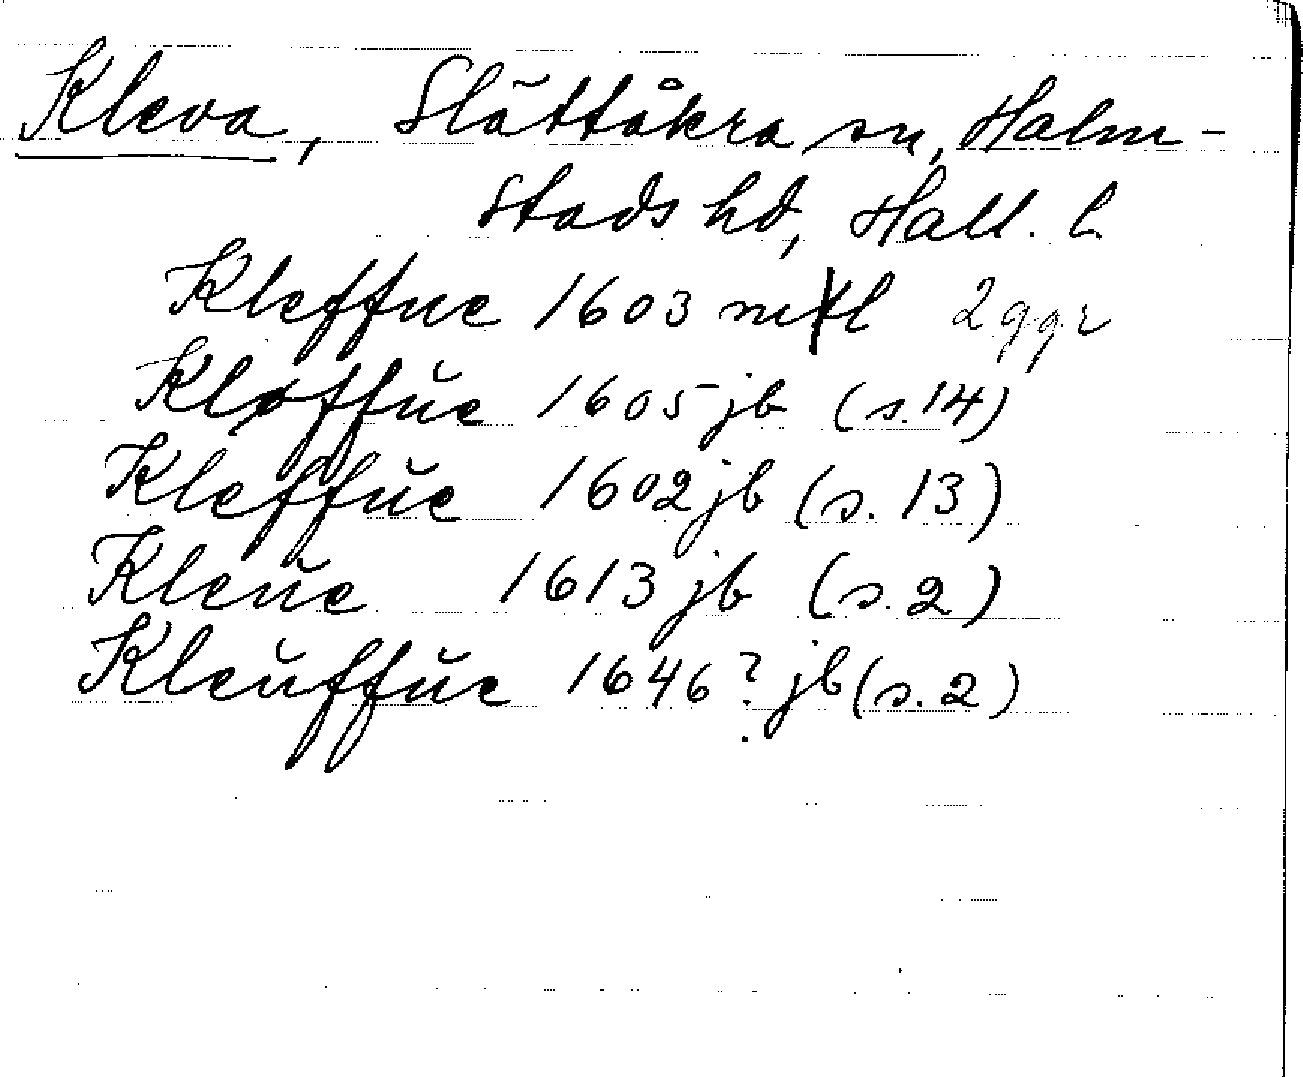 Kleva, Slättåkra sn, Halm-
stads hd, Hall. l.
Kleffue 1603 mtl 2 ggr
Kløffŭe 1605 jb (s. 14)
Kleffŭe 1602 jb (s. 13)
Kleŭe 1613 jb (s. 2)
Kleŭffŭe 1646? jb (s. 2)